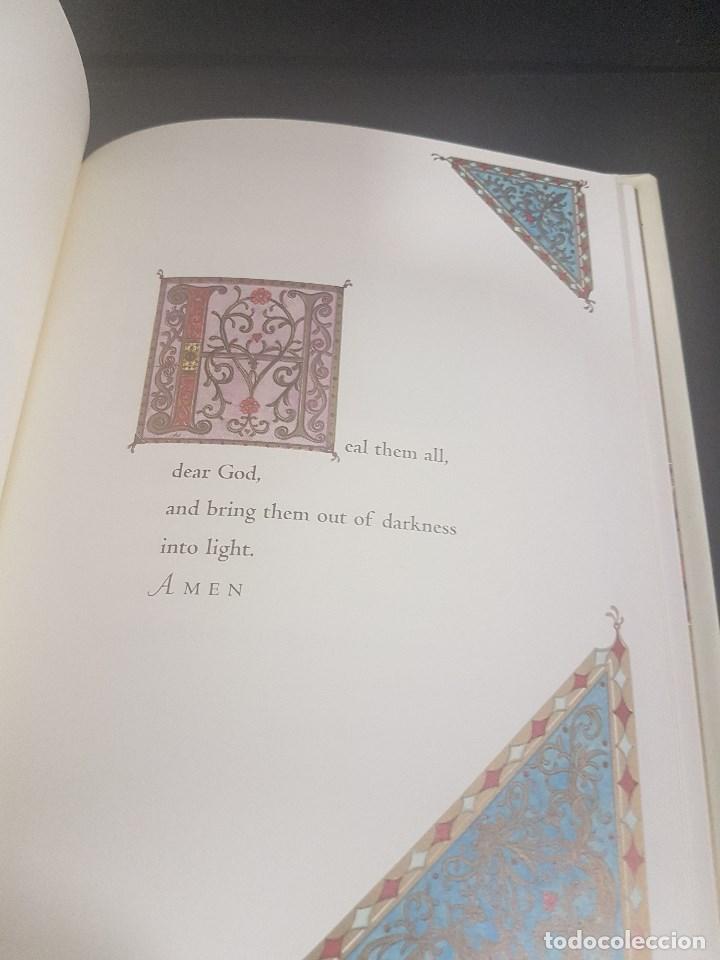 Heal them all,
dear God,
and bring them out of darkness
into light.
AMEN
todocoleccion